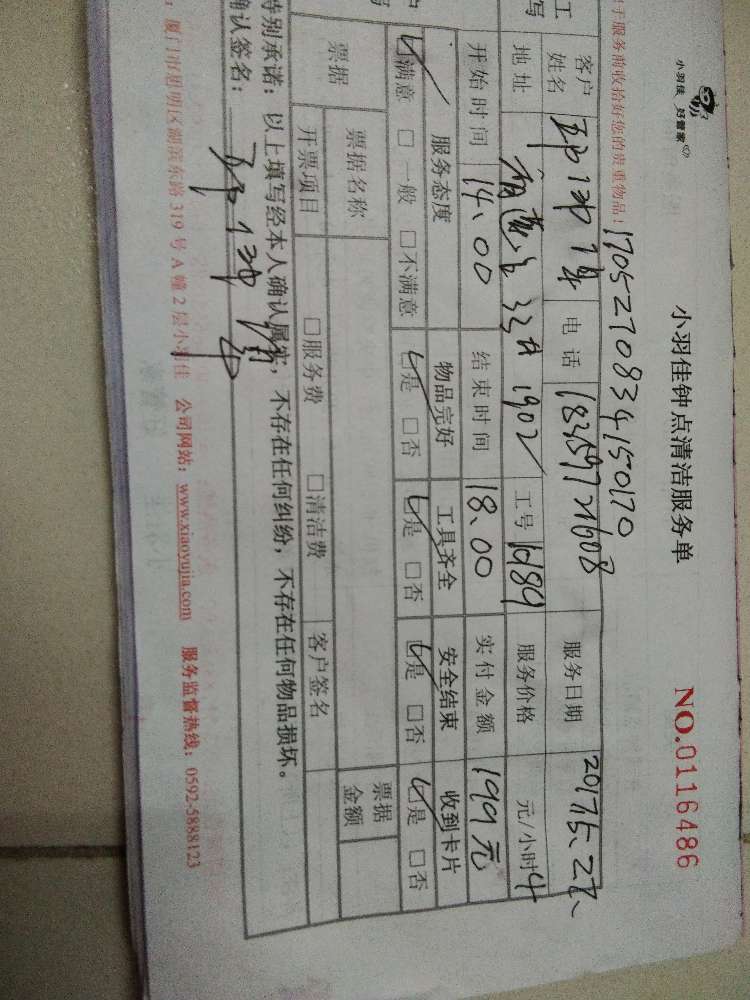 小羽佳 好管家
小羽佳钟点清洁服务单
NO.0116486
于服务前收拾好您的贵重物品!
1705270834150170
工
写
客户姓名 电话 18359721608 服务日期 2017.5.27、
地址 1902 工号 1d89 服务价格 元/小时 4
开始时间 14、00 结束时间 18.00 实付金额 199元
服务态度 物品完好 工具齐全 安全结束 收到卡片
☑满意 □一般 □不满意 ☑是 □否 ☑是 □否 ☑是 □否 ☑是 □否
票据 票据名称 票据金额
开票项目 □服务费 □清洁费 客户签名
特别承诺:以上填写经本人确认属实,不存在任何纠纷,不存在任何物品损坏。
确认签名:
:厦门市思明区湖滨东路319号A幢2层小羽佳 公司网站:www.xiaoyujia.com 服务监督热线:0592-5888123